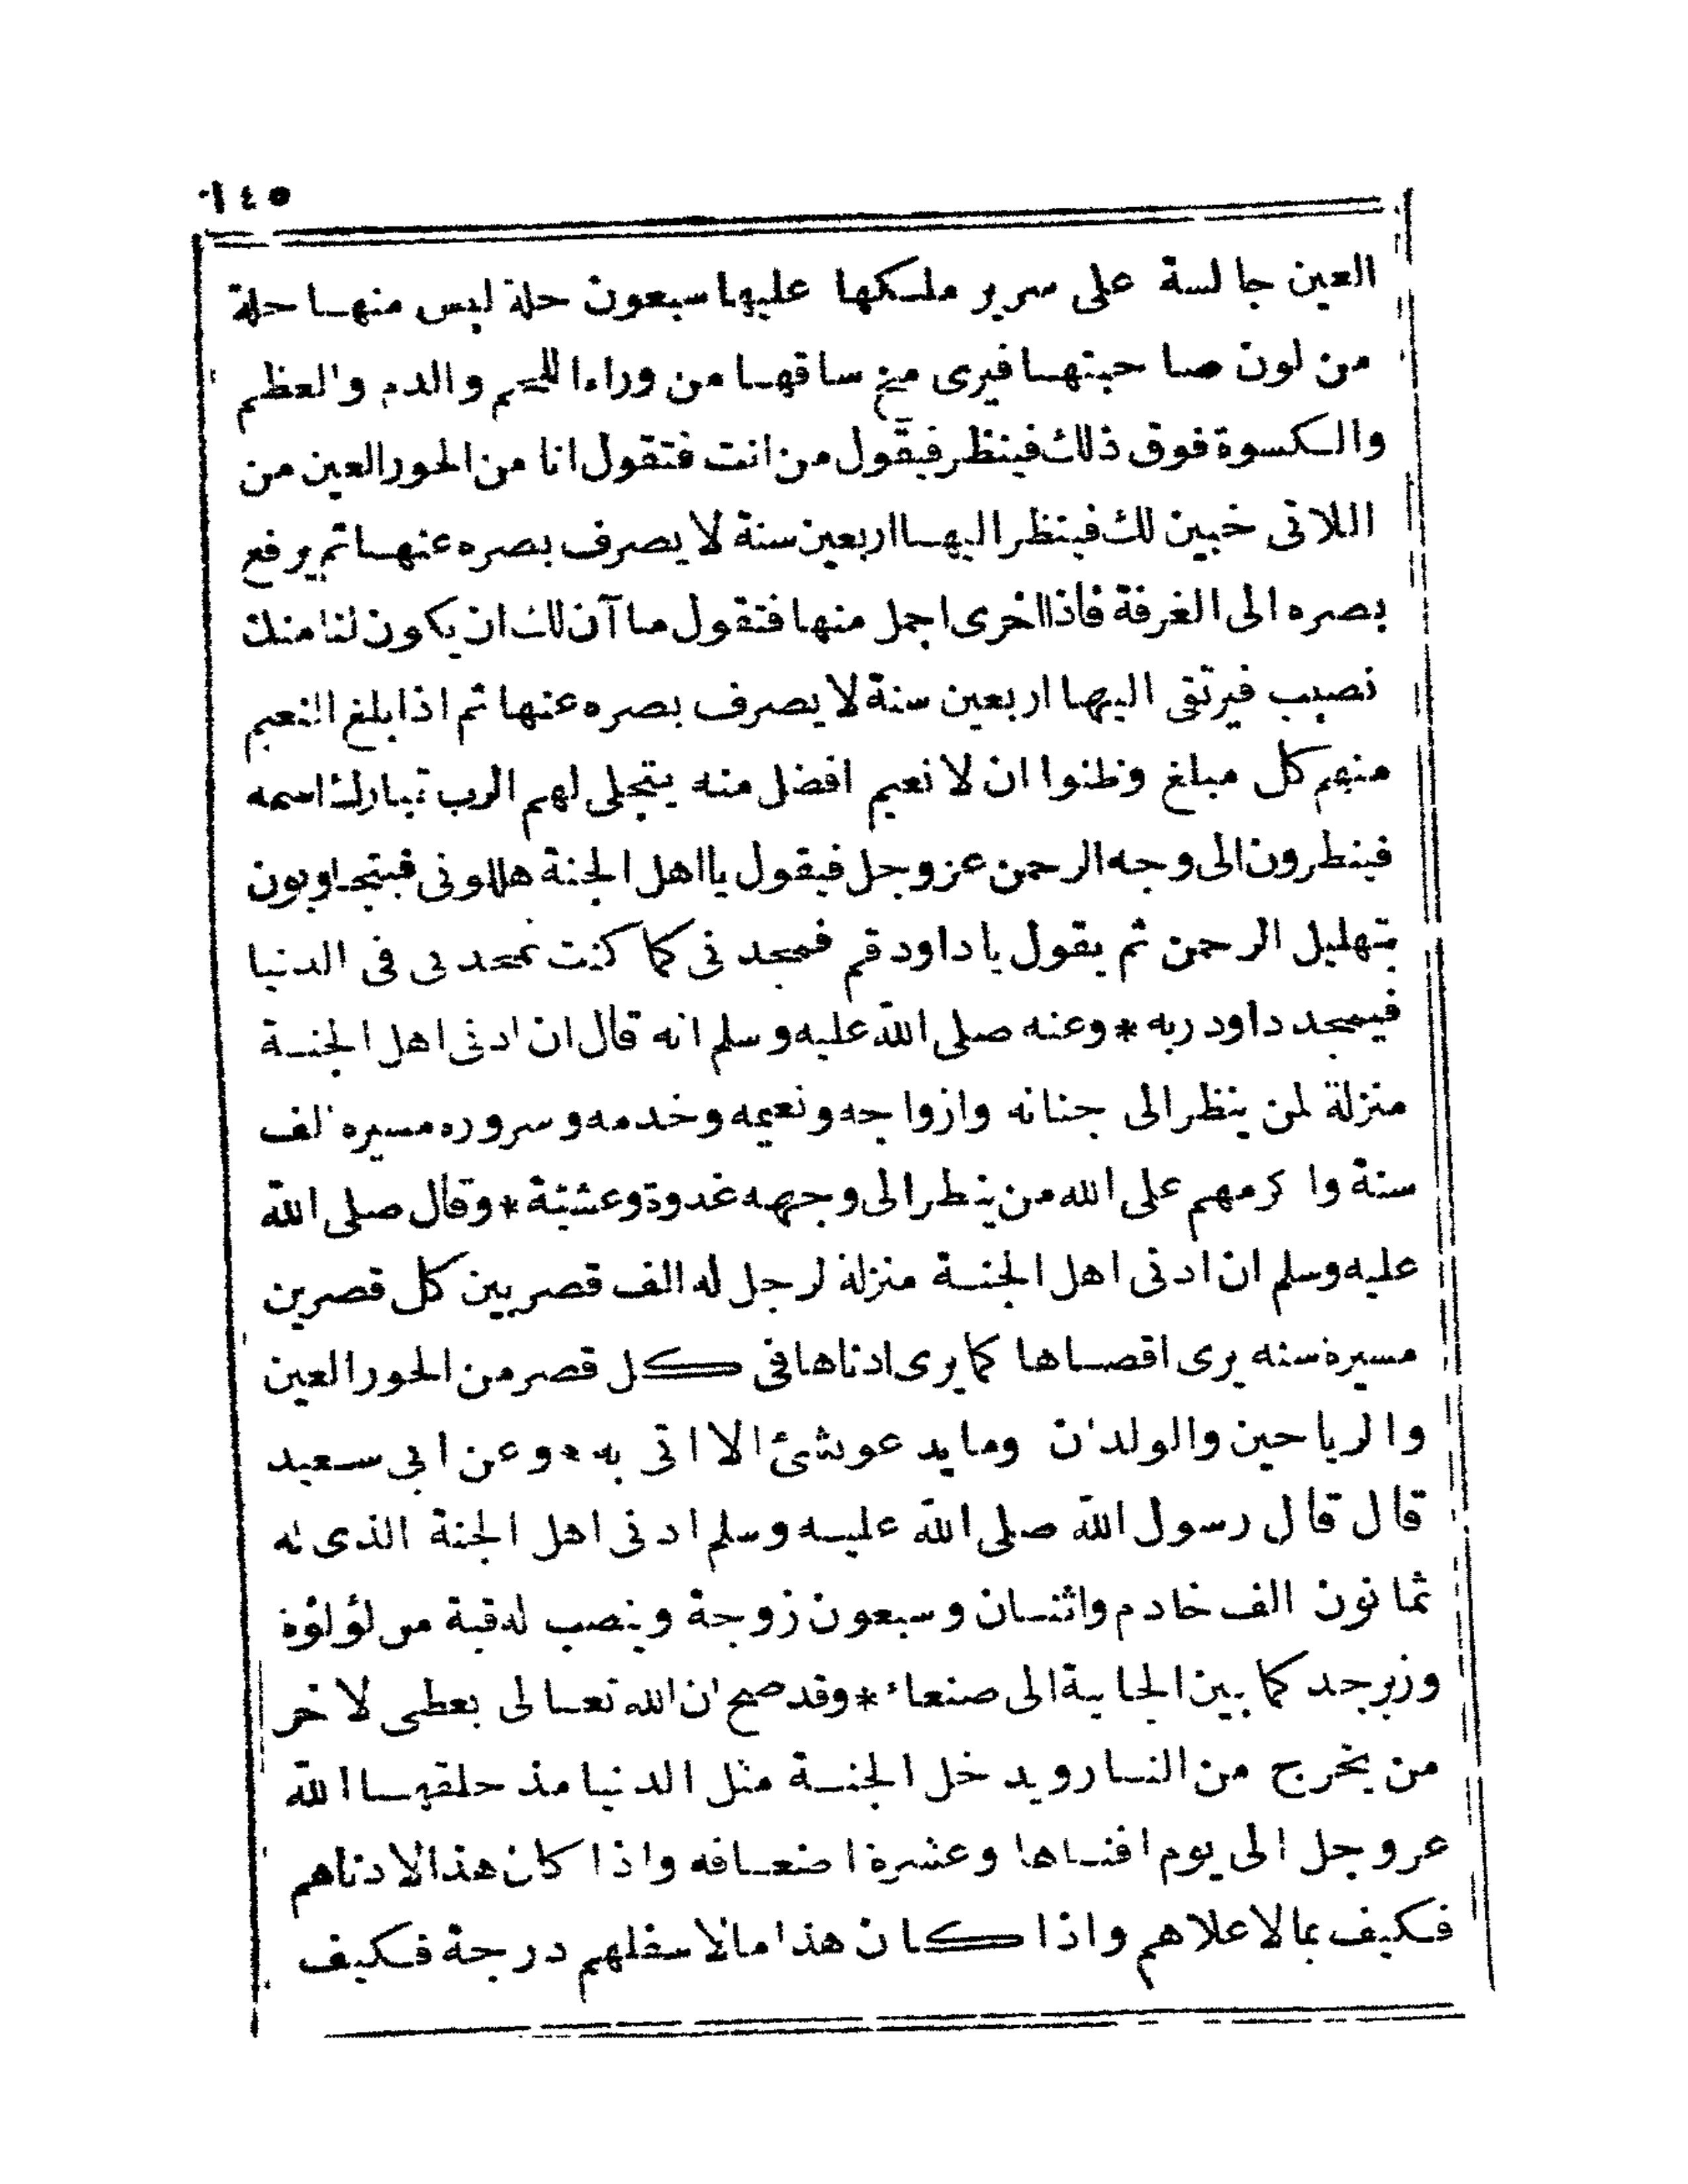 ١٤٥
العين جالسة على سرير ملكها عليها سبعون حلة ليس منها حلة
من لون صاحبتها فيرى مخ ساقها من وراء اللحم والدم والعظم
والكسوة فوق ذلك فينظر فيقول من انت فتقول انا من الحور العين من
اللاتى خبين لك فينظر اليها اربعين سنة لا يصرف بصره عنها ثم يرفع
بصره الى الغرفة فاذا اخرى اجمل منها فتقول ما آن لك ان يكون لنا منك
نصيب فيرتقى اليها اربعين سنة لا يصرف بصره عنها ثم اذا بلغ النعيم
منهم كل مبلغ وظنوا ان لا نعيم افضل منه يتجلى لهم الرب تبارك اسمه
فينظرون الى وجه الرحمن عز وجل فيقول يا اهل الجنة هللونى فيتجاوبون
بتهليل الرحمن ثم يقول يا داود قم فمجدنى كما كنت تمجدنى فى الدنيا
فيمجد داود ربه * وعنه صلى الله عليه وسلم انه قال ان ادنى اهل الجنة
منزلة لمن ينظر الى جنانه وازواجه ونعيمه وخدمه وسروره مسيرة الف
سنة واكرمهم على الله من ينظر الى وجهه غدوة وعشية * وقال صلى الله
عليه وسلم ان ادنى اهل الجنة منزلة لرجل له الف قصر بين كل قصرين
مسيرة سنه يرى اقصاها كما يرى ادناها فى كل قصر من الحور العين
والرياحين والولدان وما يدعو بشئ الا اتى به * وعن ابى سعيد
قال قال رسول الله صلى الله عليه وسلم ادنى اهل الجنة الذى له
ثمانون الف خادم واثنان وسبعون زوجة وينصب له قبة من لؤلؤة
وزبرجد كما بين الجابية الى صنعاء * وقد صح ان الله تعالى يعطى لاخر
من يخرج من النار ويدخل الجنة مثل الدنيا مذ خلقها الله
عز وجل الى يوم افناها وعشرة اضعافه واذا كان هذا لادناهم
فكيف بمالاعلاهم واذا كان هذا مالاسفلهم درجة فكيف